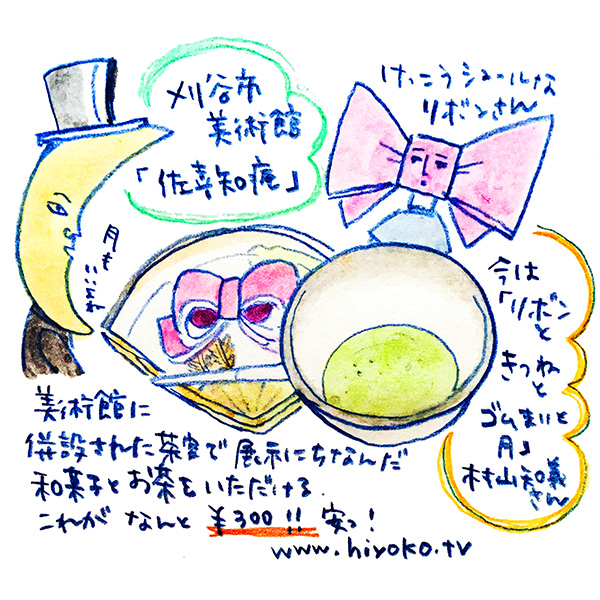 刈谷市
美術館
「佐喜知庵」
けっこうシュールな
リボンさん
月も
いいよね
今は
「リボン
と
きつね
と
ゴムまりと
月」
村山知義
さん
美術館に
併設された茶室で展示にちなんだ
和菓子とお茶をいただける。
これが なんと ¥300!! 安っ!
www.hiyoko.tv